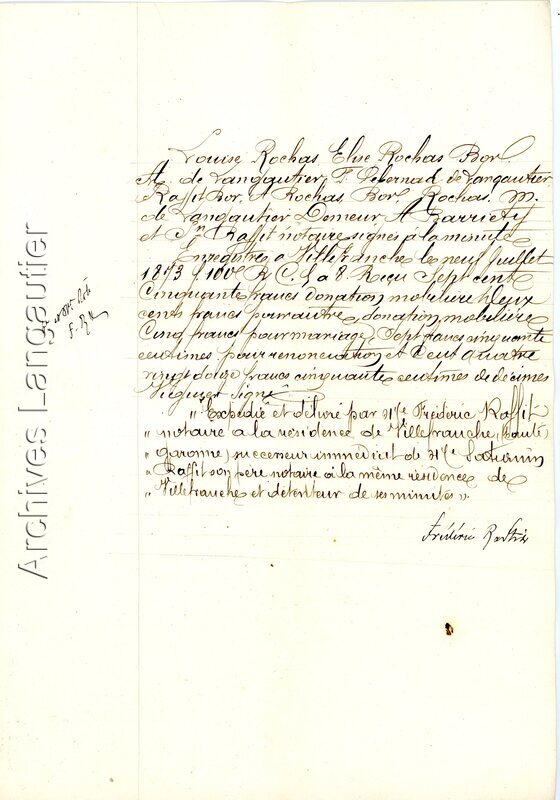 Louise Rochas Elise Rochas Bor.
A. de Langautier, F. Pebernad de Langautier
Raffit Bor. A Rochas Bor. Rochas. M.
de Langautier Domeur A Barriety
et Jn Raffit notaire signés à la minute
Enregistré à Villefranche le neuf juillet
1873 f 100 R C. 5 a 8. Reçu Sept cent
Cinquante francs donation mobilière Deux
cents francs pour autre donation mobilière
Cinq francs pour mariage, Sept francs cinquante
centimes pour renonciation et Cent quatre
vingt douze francs cinquante centimes de décimes
Viguier Signé
" Expédié et délivré par Me Frédéric Raffit
" notaire à la résidence de Villefranche, (haute)
" garonne) successeur immédiat de Me Saturnin
" Raffit son père notaire à la même résidence de
" Villefranche et détenteur de ses minutes ".
Frédéric Raffit
Archives Langautier